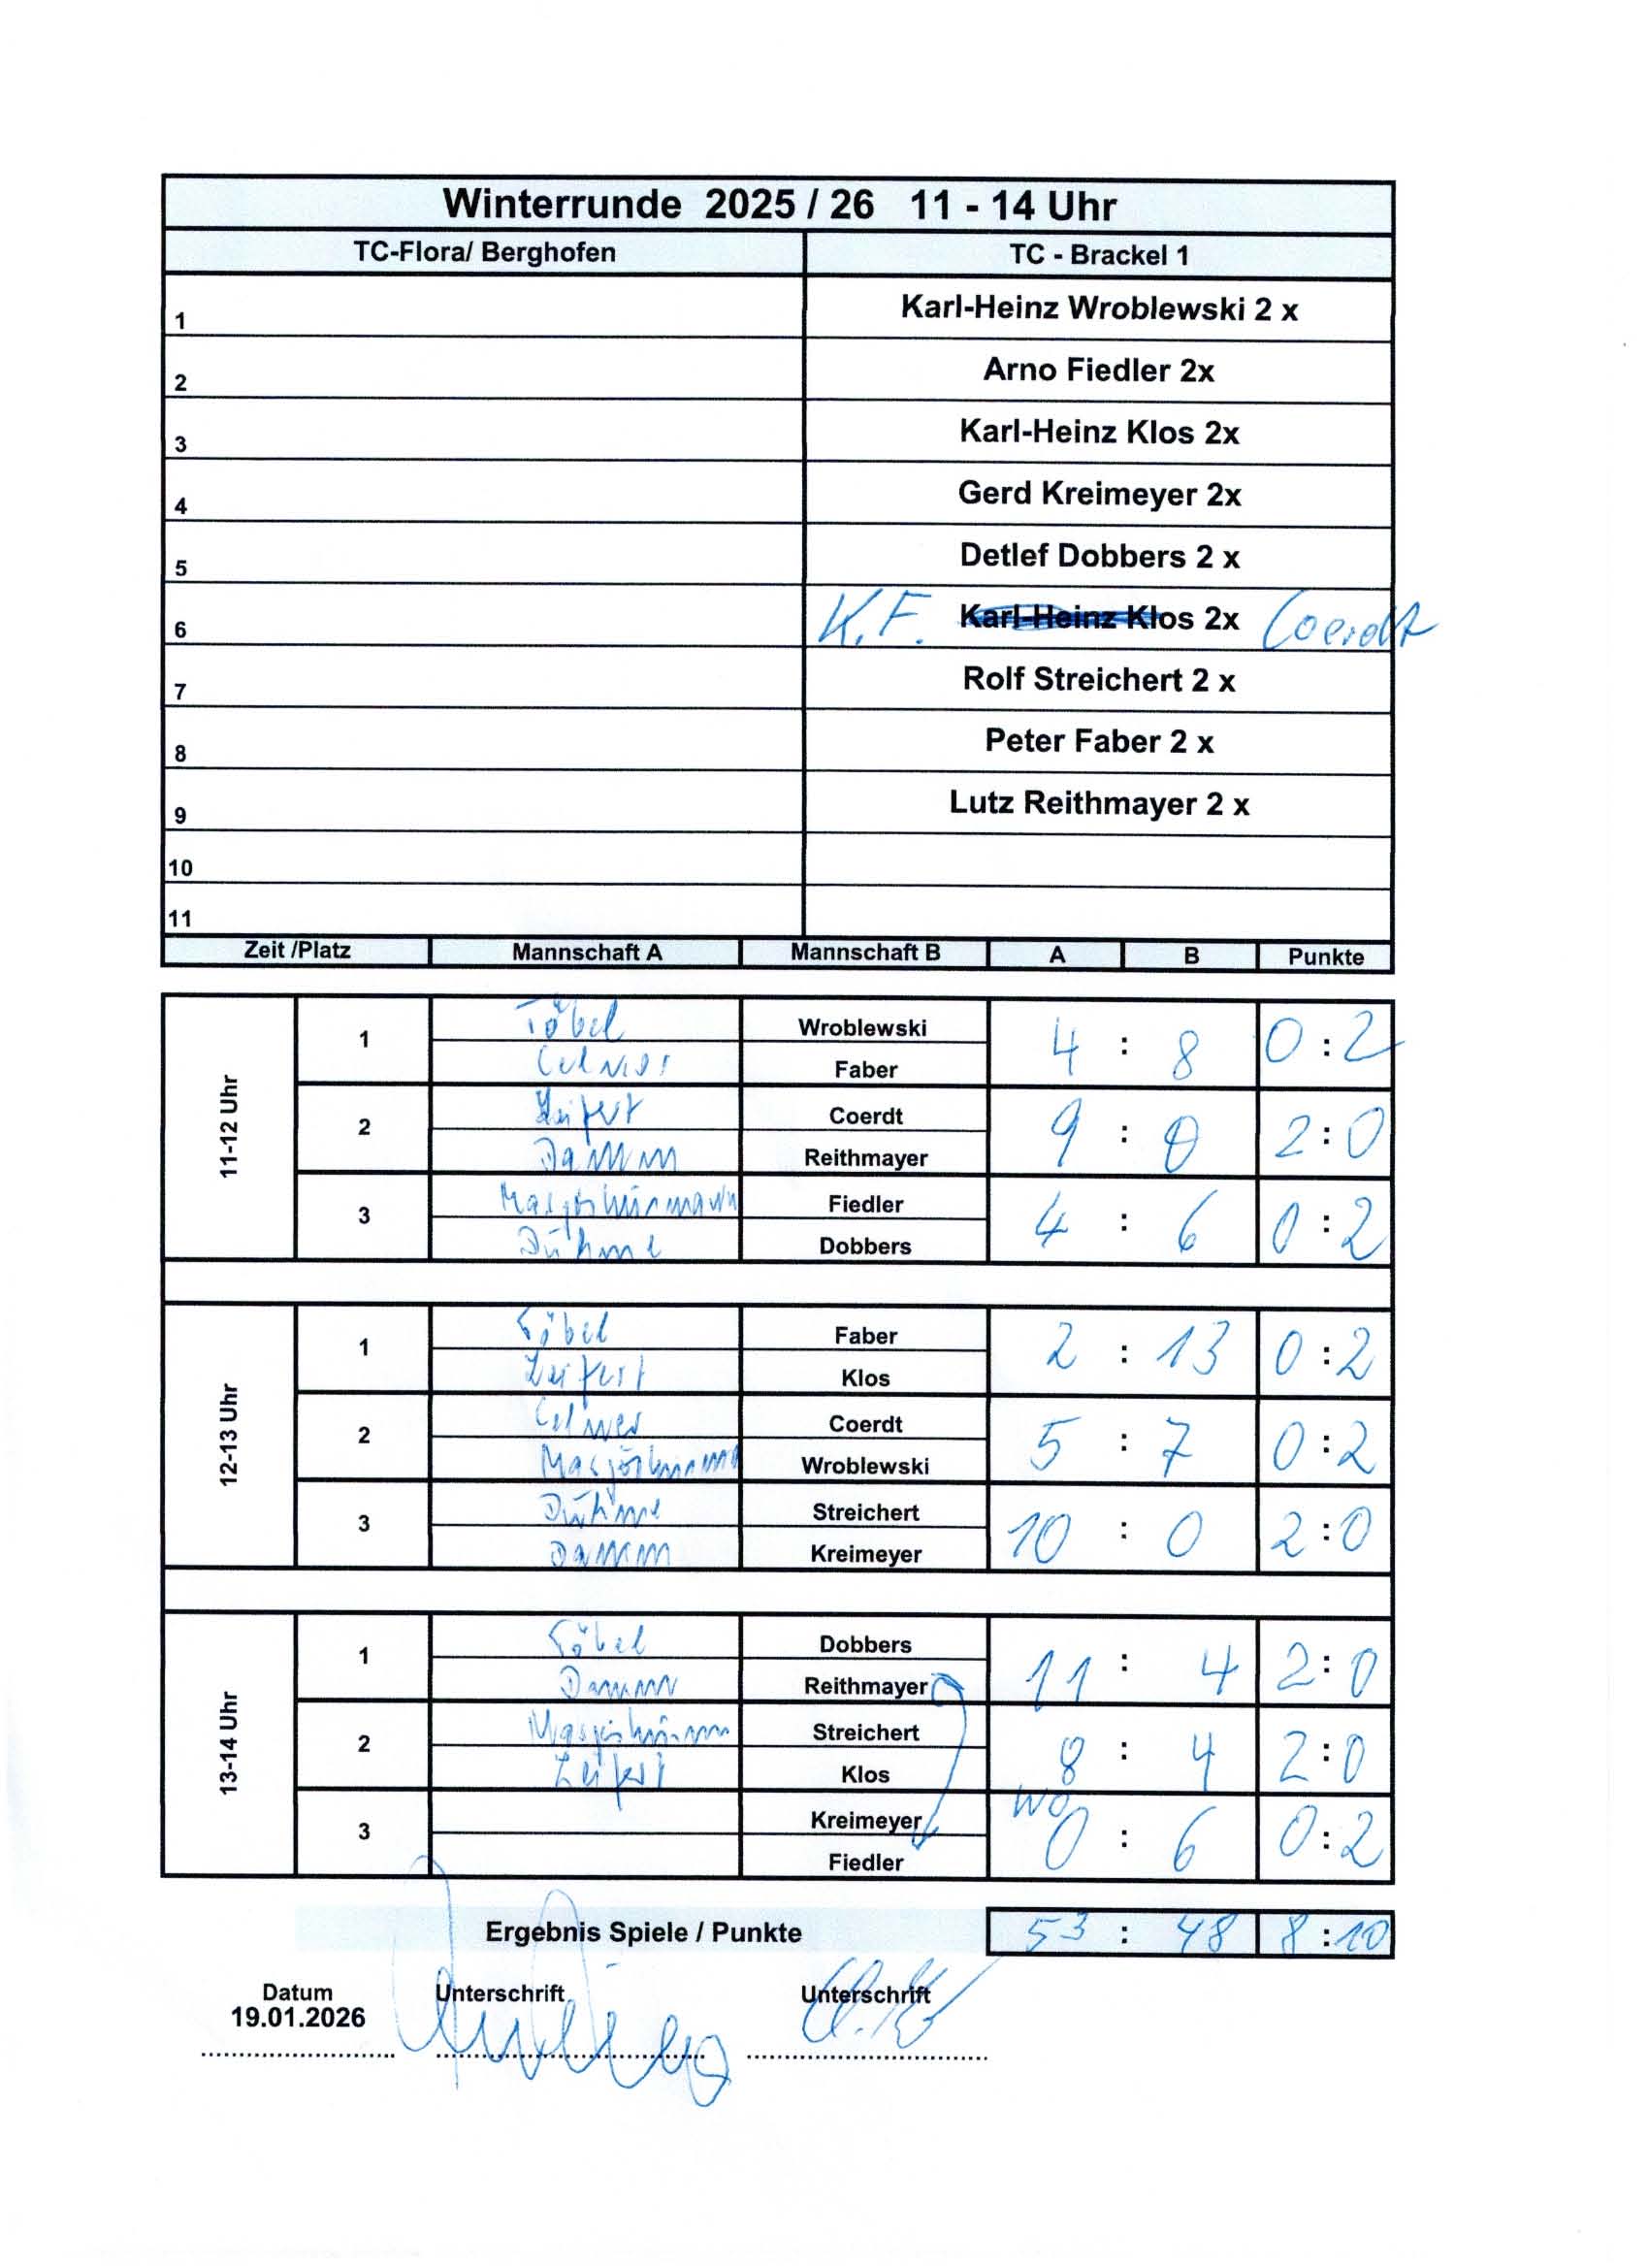 Winterrunde 2025 / 26 11 - 14 Uhr
TC-Flora/ Berghofen TC - Brackel 1
1 Karl-Heinz Wroblewski 2 x
2 Arno Fiedler 2x
3 Karl-Heinz Klos 2x
4 Gerd Kreimeyer 2x
5 Detlef Dobbers 2 x
6 K.F. Karl-Heinz Klos 2x Coerdt
7 Rolf Streichert 2 x
8 Peter Faber 2 x
9 Lutz Reithmayer 2 x
10
11
Zeit /Platz Mannschaft A Mannschaft B A B Punkte
11-12 Uhr
1 Töbel Wroblewski 4 : 8 0 : 2
Faber
2 Leifert Coerdt 9 : 0 2 : 0
Damm Reithmayer
3 Fiedler 4 : 6 0 : 2
Dühme Dobbers
12-13 Uhr
1 Töbel Faber 2 : 13 0 : 2
Leifert Klos
2 Coerdt 5 : 7 0 : 2
Wroblewski
3 Dühme Streichert 10 : 0 2 : 0
Damm Kreimeyer
13-14 Uhr
1 Töbel Dobbers 11 : 4 2 : 0
Damm Reithmayer
2 Streichert 8 : 4 2 : 0
Leifert Klos
3 Kreimeyer WO 0 : 6 0 : 2
Fiedler
Ergebnis Spiele / Punkte 53 : 48 8 : 10
Datum Unterschrift Unterschrift
19.01.2026